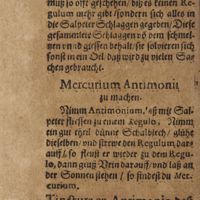 muß so offt geschehen/ biß es keinen Re-
gulum mehr gibt/sondern sich alles in
die Salpeter Schlaggen gegeben/ Diese
gesammlete Schlaggen so dem schmel-
tzen vnd giessen behalt/ sie solviren sich
sonst in ein Oel/ daß wird zu vielen Sa-
chen gebraucht.
Mercurium Antimonii
zu machen.
Nimm Antimonium, laß mit Sal-
peter fliessen zu einem Regulo, Nimm
ein gut theil dünne Schalblech/ glühe
dieselben/ vnd strewe den Regulum, dar-
auff/ so fleust er wieder zu dem Regu-
lo, dann geuß Wein darauff/ vnd laß an
der Sonnen ziehen/ so findest du Mer-
curium.